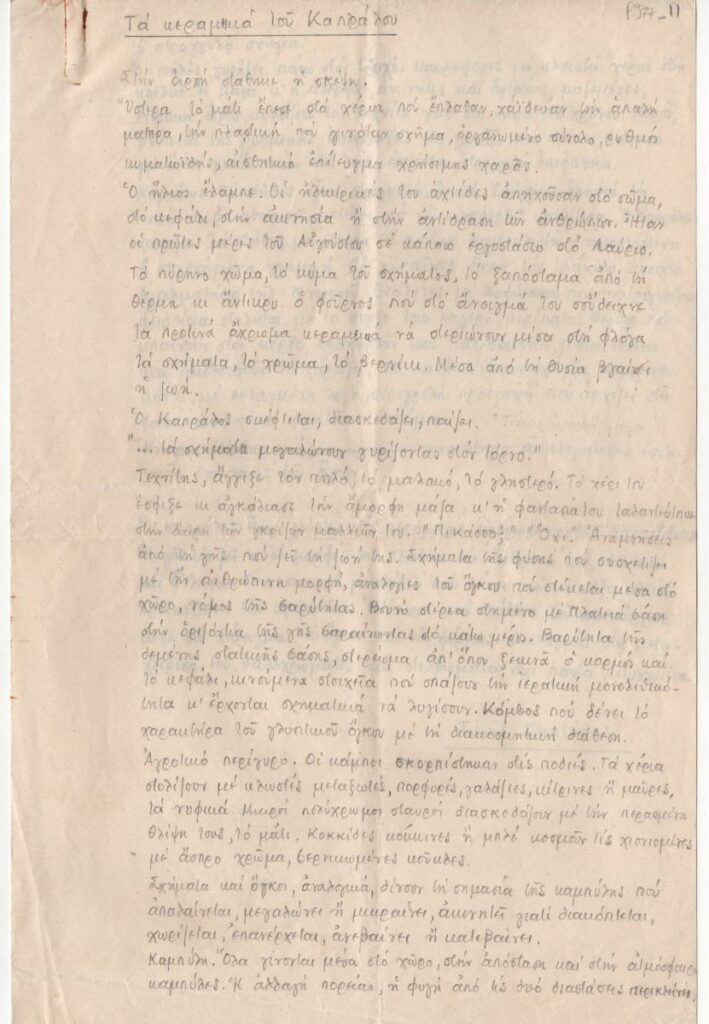 Τά κεραμικά τοῦ Καπράλου
Στήν ἀρχή στάθηκε ἡ σκέψη.
Ὕστερα τό μάτι ἔπεσε στά χέρια πού ἔπλαθαν, χαΐδευαν τήν ἁπαλή
μαται, τήν πλαστική πού γινόταν σχῆμα, ὀργανωμένο σύνολο, ρυθμός
κυματώδης, αἰσθητικό ἐπίτευγμα χρήσιμης χαρᾶς.
Ὁ ἥλιος ἔλαμπε. Οἱ ἠλεκτρικές του ἀχτίδες ἀπηχοῦσαν στό σῶμα,
στό κεφάλι, στήν ἀκινησία ἤ στήν ἀντίδραση τῶν ἀνθρώπων. Ἦταν
οἱ πρῶτες μέρες τοῦ Αὐγούστου σέ κάποιο ἐργοστάσιο στό Λαύριο.
Τό πύρινο χῶμα, τό κῦμα τοῦ σχήματος, τό ξαπόσταμα ἀπό τή
θέρμη κι ἄντικρυ ὁ φοῦρνος πού στό ἄνοιγμά του σοὔδειχνε
τά πρωινά ἄχρωμα κεραμικά νά στεριώνουν μέσα στή φλόγα
τά σχήματα, τό χρῶμα, τό βερνίκι. Μέσα ἀπό τή θυσία βγαίνει
ἡ ζωή.
Ὁ Καπράλος σκέφτεται, διασκεδάζει, παίζει.
"... τά σχήματα μεγαλώνουν γυρίζοντας στόν τόρνο."
Τεχνίτης, ἄγγιξε τόν πηλό, τό μαλακό, τό γλιστερό. Τό χέρι του
ἔσφιξε κι ἀγκάλιασε τήν ἄμορφη μάζα κ' ἡ φαντασία του ταλαντεύτηκε
στήν ἄκρη τῶν γκρίζων μαλλιῶν του. "Πικάσσο;" "Ὄχι." Ἀναμνήσεις
ἀπό τή γῆς πού ζεῖ τή ζωή της. Σχήματα τῆς φύσης πού συσχετίζει
μέ τήν ἀνθρώπινη μορφή, ἀναλογίες τοῦ ὄγκου πού στέκεται μέσα στό
χῶρο, νόμος τῆς βαρύτητας. Βουνό στέρεα στημένο μέ πλατειά βάση
στήν ὁριζόντια τῆς γῆς βαραίνοντας στό κάτω μέρος. Βαρύτητα τῆς
δεμένης στατικῆς βάσης, στερέωμα ἀπ' ὅπου ξεκινᾶ ὁ κορμός καί
τό κεφάλι, κινούμενα στοιχεῖα πού σπάζουν τήν ἱερατική μονολιθικό-
τητα κ' ἔρχονται σχηματικά νά λυγίσουν. Κόμβος πού δένει τό
χαρακτήρα τοῦ γλυπτικοῦ ὄγκου μέ τή διακοσμητική διάθεση.
Ἀγροτικό περίγυρο. Οἱ κάμποι σκορπίστηκαν στίς ποδιές. Τά χέρια
στολίζουν μέ κλωστές μεταξωτές, πορφυρές, γαλάζιες, κίτρινες ἤ μαῦρες,
τά νυφικά. Μικροί πολύχρωμοι σταυροί διασκεδάζουν μέ τήν περασμένη
θλίψη τους, τό μάτι. Κοκκίδες κόκκινες ἤ μπλέ κοσμοῦν τίς χιονισμένες
μέ ἄσπρο χρῶμα, βερνικωμένες κοῦκλες.
Σχήματα καί ὄγκοι, ἀναλογικά, δίνουν τή σημασία τῆς καμπύλης πού
ἁπλώνεται, μεγαλώνει ἤ μικραίνει, ἀκινητεῖ γιατί διακόπτεται,
χωρίζεται, ἐπανέρχεται, ἀνεβαίνει ἤ κατεβαίνει.
Καμπύλη. Ὅλα γίνονται μέσα στό χῶρο, στήν ἀπόσταση καί στήν ἀτμόσφαιρα
καμπύλες. Ἡ ἀλλαγή πορείας, ἡ φυγή ἀπό τίς δυό διαστάσεις περικλείνει,